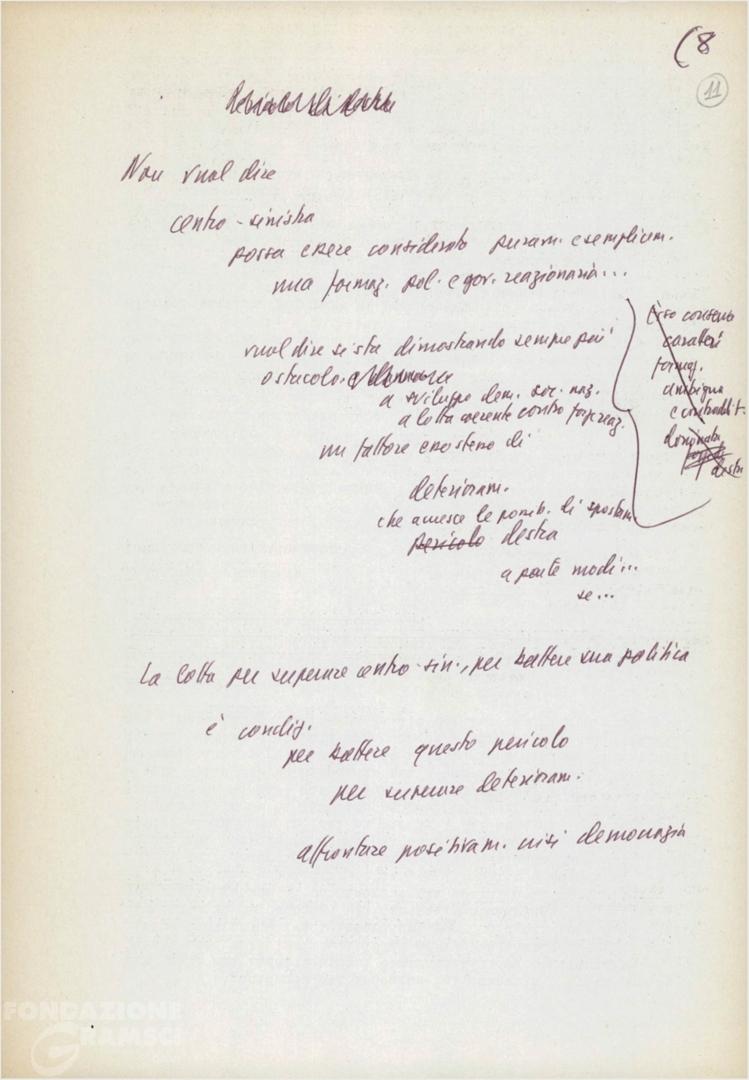 (8
11
Non vuol dire
centro-sinistra
possa essere considerato puram. e semplicem.
una formaz. pol. e gov. reazionaria...
vuol dire si sta dimostrando sempre più
ostacolo.
a sviluppo dem. soc. naz.
a lotta coerente contro forze reaz.
un fattore esso stesso di
deterioram.
che accresce le possib. di spostam.
pericolo destra
a parte modi...
se...
Esso conserva
caratteri
formaz.
ambigua
e contraddit.
dominata
destra
La lotta per superare centro-sin., per battere sua politica
è condiz.
per battere questo pericolo
per superare deterioram.
affrontare positivam. crisi democrazia
FONDAZIONE
GRAMSCI